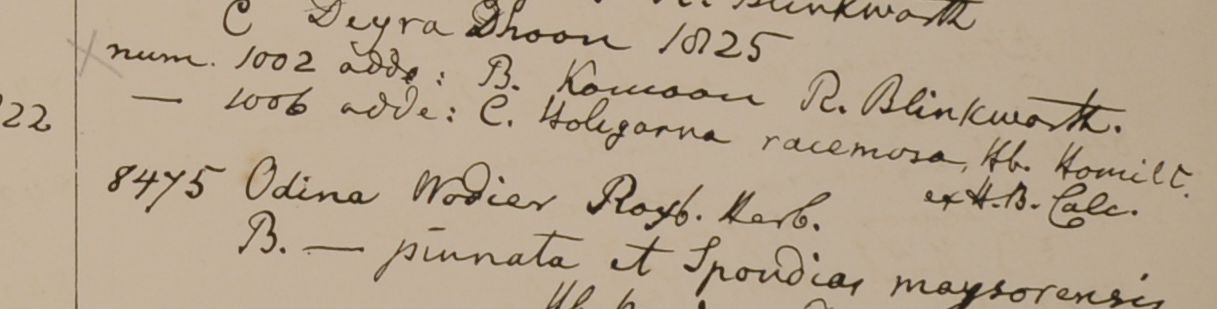 R. Blinkworth
C Deyra Dhoon 1825
num. 1002 adde: B. Kamoon R. Blinkworth.
22 — 1006 adde: C. Holigarna racemosa, Hb. Hamilt.
ex H.B. Calc.
8475 Odina Wodier Roxb. Herb.
B. — pinnata et Spondias maysorensis